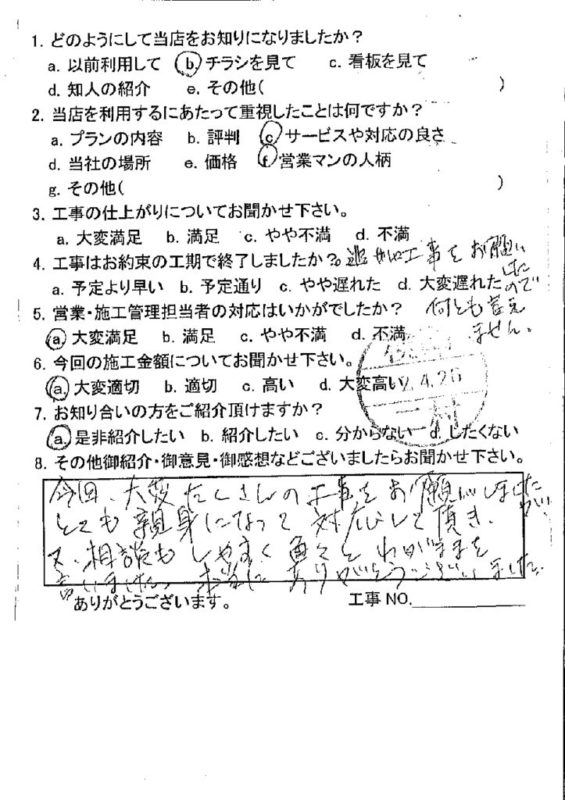 1. どのようにして当店をお知りになりましたか？
a. 以前利用して　b. チラシを見て　c. 看板を見て
d. 知人の紹介　e. その他(　　　)
2. 当店を利用するにあたって重視したことは何ですか？
a. プランの内容　b. 評判　c. サービスや対応の良さ
d. 当社の場所　e. 価格　f. 営業マンの人柄
g. その他(　　　)
3. 工事の仕上がりについてお聞かせ下さい。
a. 大変満足　b. 満足　c. やや不満　d. 不満
4. 工事はお約束の工期で終了しましたか？
追加工事をお願いしたので何とも言えません。
a. 予定より早い　b. 予定通り　c. やや遅れた　d. 大変遅れた
5. 営業・施工管理担当者の対応はいかがでしたか？
a. 大変満足　b. 満足　c. やや不満　d. 不満
6. 今回の施工金額についてお聞かせ下さい。
a. 大変適切　b. 適切　c. 高い　d. 大変高い
4.26
7. お知り合いの方をご紹介頂けますか？
a. 是非紹介したい　b. 紹介したい　c. 分からない　d. したくない
8. その他御紹介・御意見・御感想などございましたらお聞かせ下さい。
今回、大変たくさんの工事をお願いしました
とても親身になって対応して頂き、
又、相談もしやすく色々とわがままを
言いました。本当にありがとうございました。
ありがとうございます。　工事 NO.